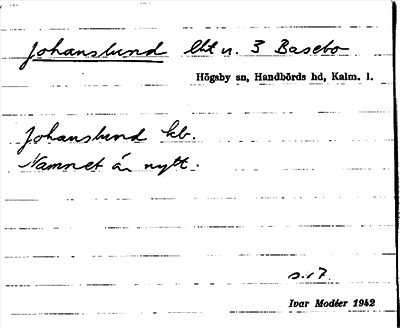 Johanslund lht u. 3 Basebo
Högsby sn, Handbörds hd, Kalm. l.
Johanslund kb.
Namnet är nytt.
s. 17.
Ivar Modéer 1942